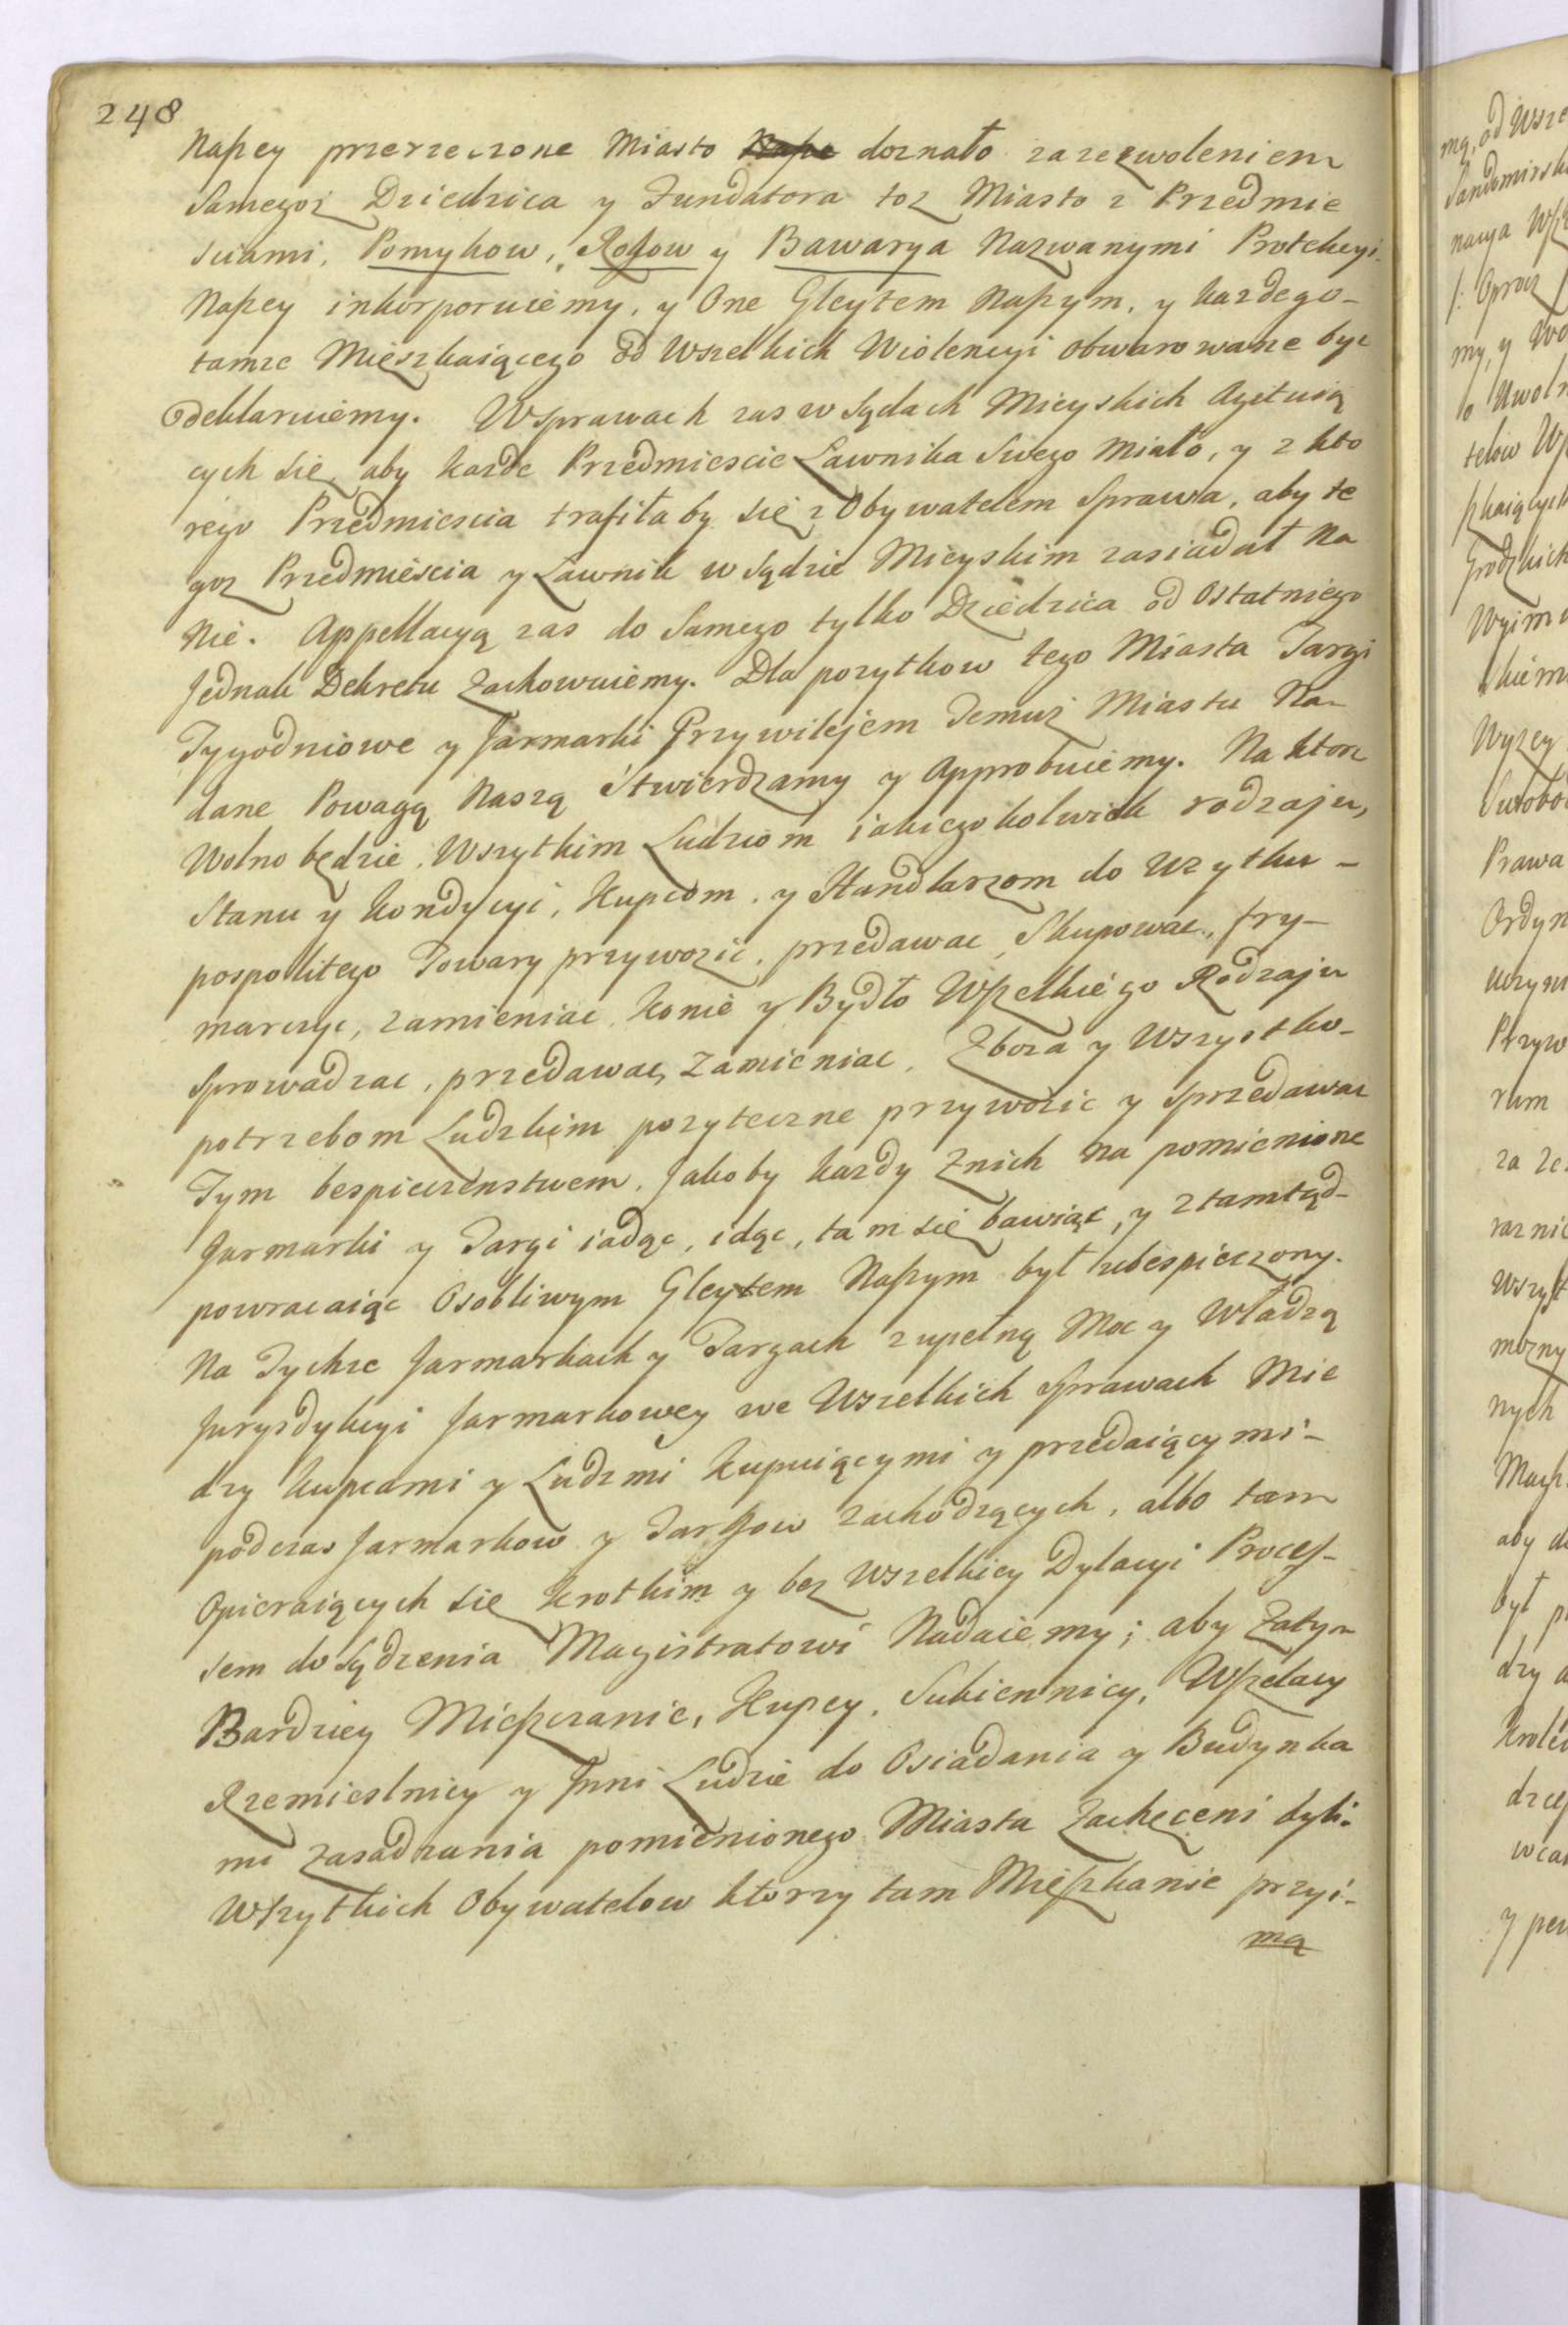 248
Naszey przerzeczone Miasto doznało zazezwoleniem
Samegoż Dziedzica y Fundatora toż Miasto z Przedmie
sciami, Pomykow, Rogow y Bawarya Nazwanymi Protekcyi
Naszey inkorporuiemy, y One Gleytem Naszym, y kazdego-
tamze Mieszkaiącego od Wszelkich Wiolencyi obwarowane byc
deklaruiemy. Wsprawach zas w Sądach Mieyskich Agituią
cych się, aby kazde Przedmiescie Ławnika Swego Miało, y z kto
rego Przedmiescia trafiłaby się z Obywatelem Sprawa, aby te
goz Przedmiescia y Ławnik w Sądzie Mieyskim zasiadał Na
nie. Appellacyą zas do Samego tylko Dziedzica od Ostatniego
Jednak Dekretu Zachowuiemy. Dla pozytkow tego Miasta Targi
Tygodniowe y Jarmarki Przywilejem Temuż Miastu Na-
dane Powagą Naszą Stwierdzamy y Approbuiemy. Na ktore
Wolno będzie, Wszytkim Ludziom iakiegokolwiek rodzaju,
Stanu y Kondycyi, Kupcom, y Handlarzom do Uzytku-
pospolitego Towary przywozic, przedawac, Skupowac, fry-
marczyc, zamieniac, Konie y Bydło Wszelkiego Rodzaju
Sprowadzac, przedawac, Zamieniac, Zboza y Wszystko-
potrzebom Ludzkim pozyteczne przywozic y Sprzedawac
Tym bespieczenstwem, Jakoby kazdy Znich na pomienione
Jarmarki y Targi iadąc, idąc, tam się bawiąc, y ztamtąd-
powracaiąc Osobliwym Gleytem Naszym był ubespieczony.
Na Tychze Jarmarkach y Targach zupełną Moc y Władzą
Jurysdykcyi Jarmarkowey we Wszelkich Sprawach Mie
dzy Kupcami y Ludzmi Kupuiącymi y przedaiącymi-
podczas Jarmarkow y Targow zachodzących, albo tam
Opieraiących się krotkim y bez Wszelkiey Dylacyi Proces-
sem do Sądzenia Magistratowi Nadaiemy; aby Zatym
Bardziey Mieszczanie, Kupcy, Sukiennicy, Wszelacy
Rzemieslnicy y Inni Ludzie do Osiadania y Budynka
mi Zasadzania pomienionego Miasta Zachęceni byli.
Wszytkich Obywatelow ktorzy tam Mieszkanie przyi-
mą